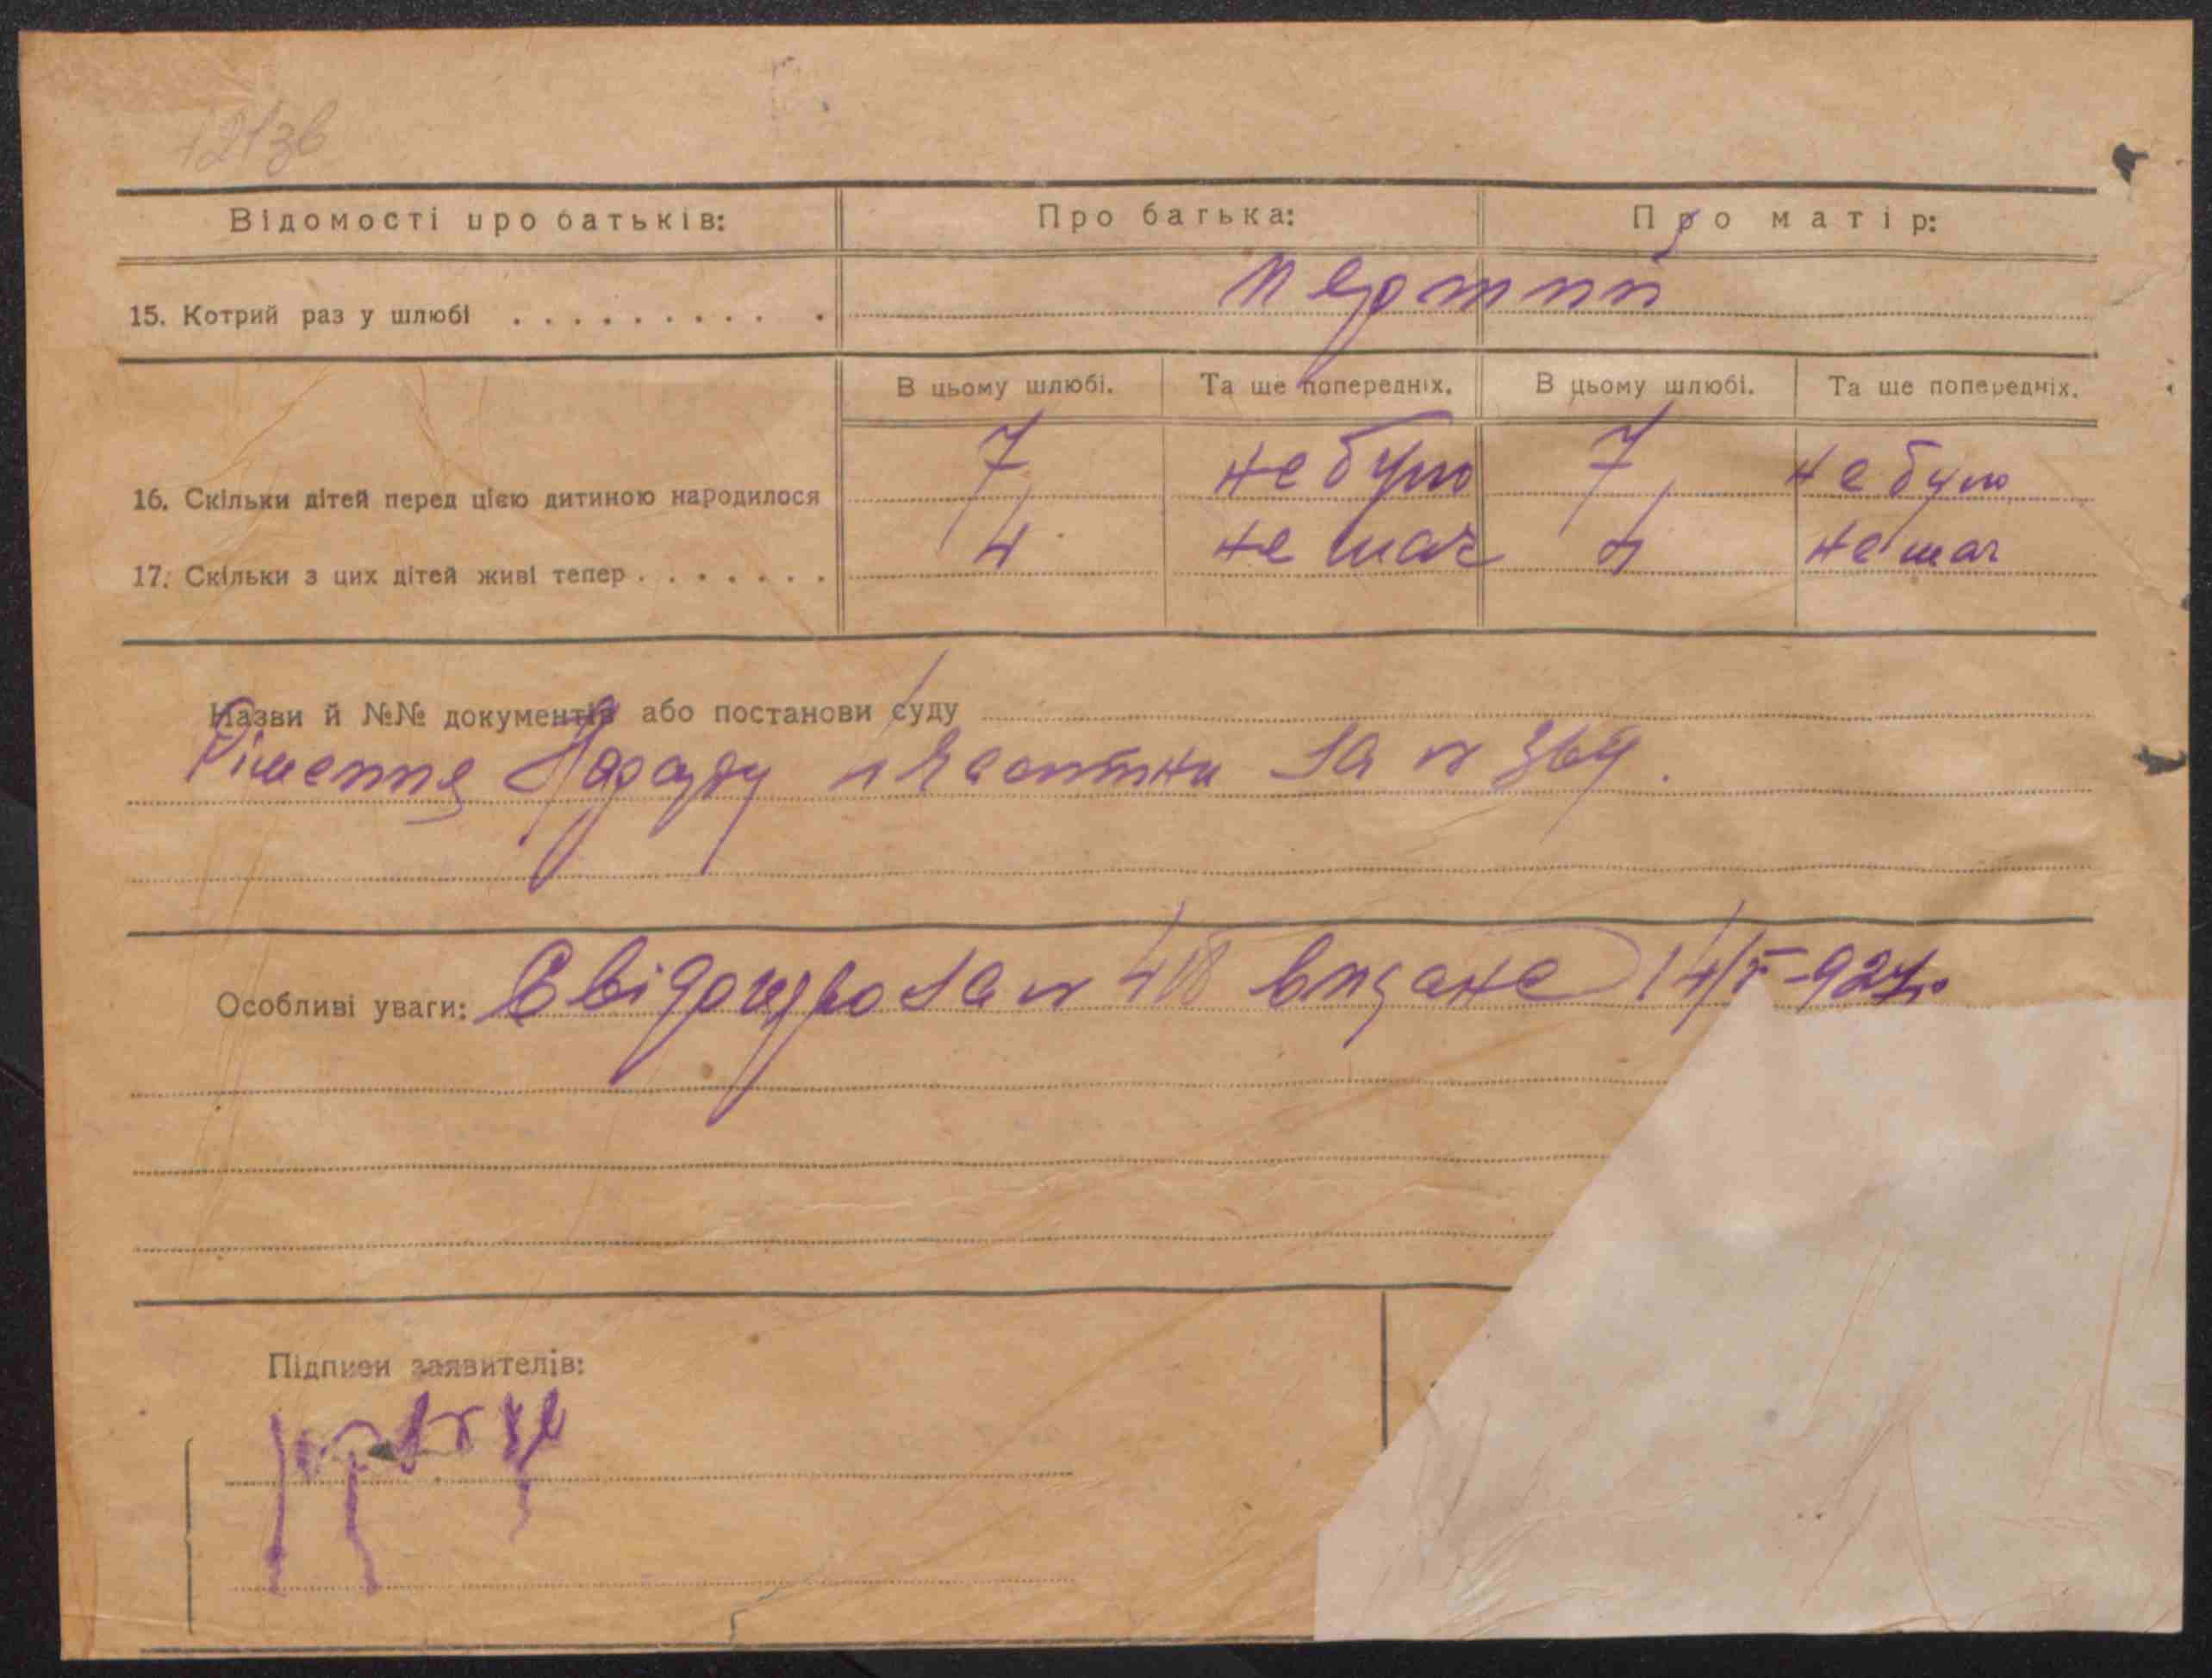 121зв
Відомості про батьків: Про батька: Про матір:
15. Котрий раз у шлюбі . . . . . . . . . . перший
В цьому шлюбі. Та ще попередніх. В цьому шлюбі. Та ще попередніх.
16. Скільки дітей перед цією дитиною народилося 7 не було 7 не було
17. Скільки з цих дітей живі тепер . . . . . . . 4 не має 4 не має
Назви й №№ документів або постанови суду
Рішення за № 364.
Особливі уваги: Свідоцтво за № 418 видане 14/V-927р.
Підписи заявителів: